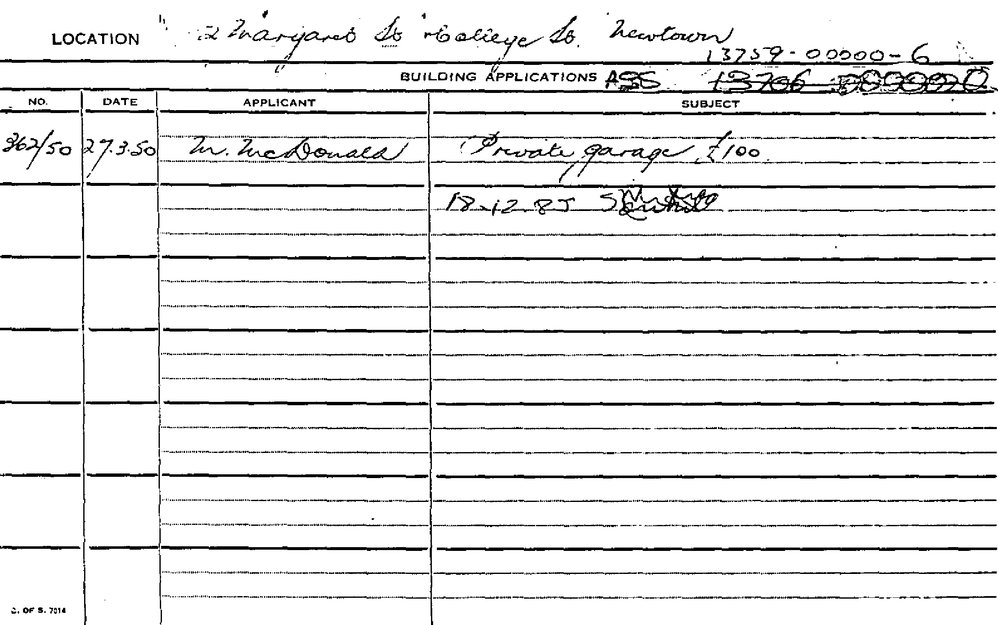 LOCATION 2 Margaret St & College St. Newtown
13759-00000-6
BUILDING APPLICATIONS ASS 13706
NO. DATE APPLICANT SUBJECT
362/50 27.3.50 M. McDonald Private garage £100
18.12.85
C. OF S. 7014